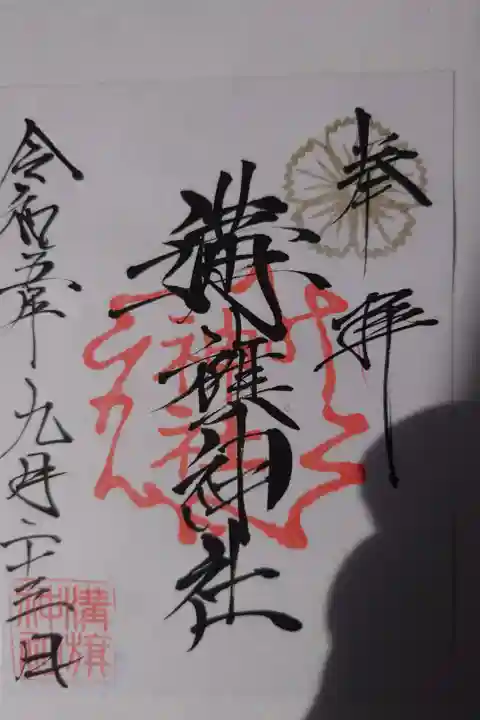 奉拝
溝旗神社
令和五年九月二十三日
溝旗
神社